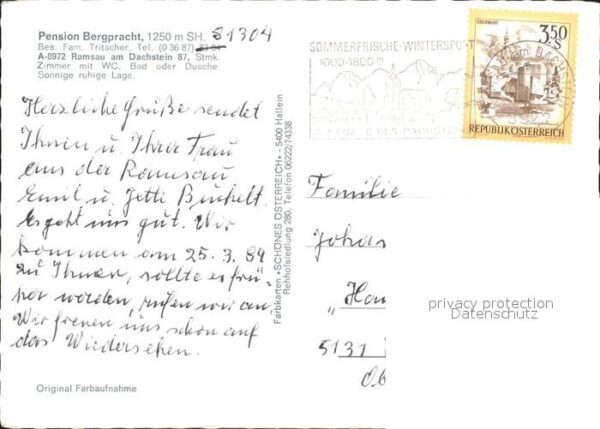 Pension Bergpracht, 1250 m SH. 81304
Bes. Fam. Tritscher, Tel. (0 36 87)
A-8972 Ramsau am Dachstein 87, Stmk.
Zimmer mit WC, Bad oder Dusche.
Sonnige ruhige Lage.
Herzliche Grüße sendet
Ihnen u. Ihrer Frau
aus der Ramsau
Emil u. Jetti Buchelt.
Es geht uns gut. Wir
kommen am 25. 3. 84
zu Ihnen, sollte es frü-
her werden, rufen wir an.
Wir freuen uns schon auf
das Wiedersehen.
Original Farbaufnahme
Farbkarten »SCHÖNES ÖSTERREICH« - 5400 Hallein
Rehhofsiedlung 280, Telefon 06222/74338
SOMMERFRISCHE-WINTERSPORT
1000-1800 m
OBERWART
3.50
S
REPUBLIK ÖSTERREICH
Familie
Johas
5131
privacy protection
Datenschutz